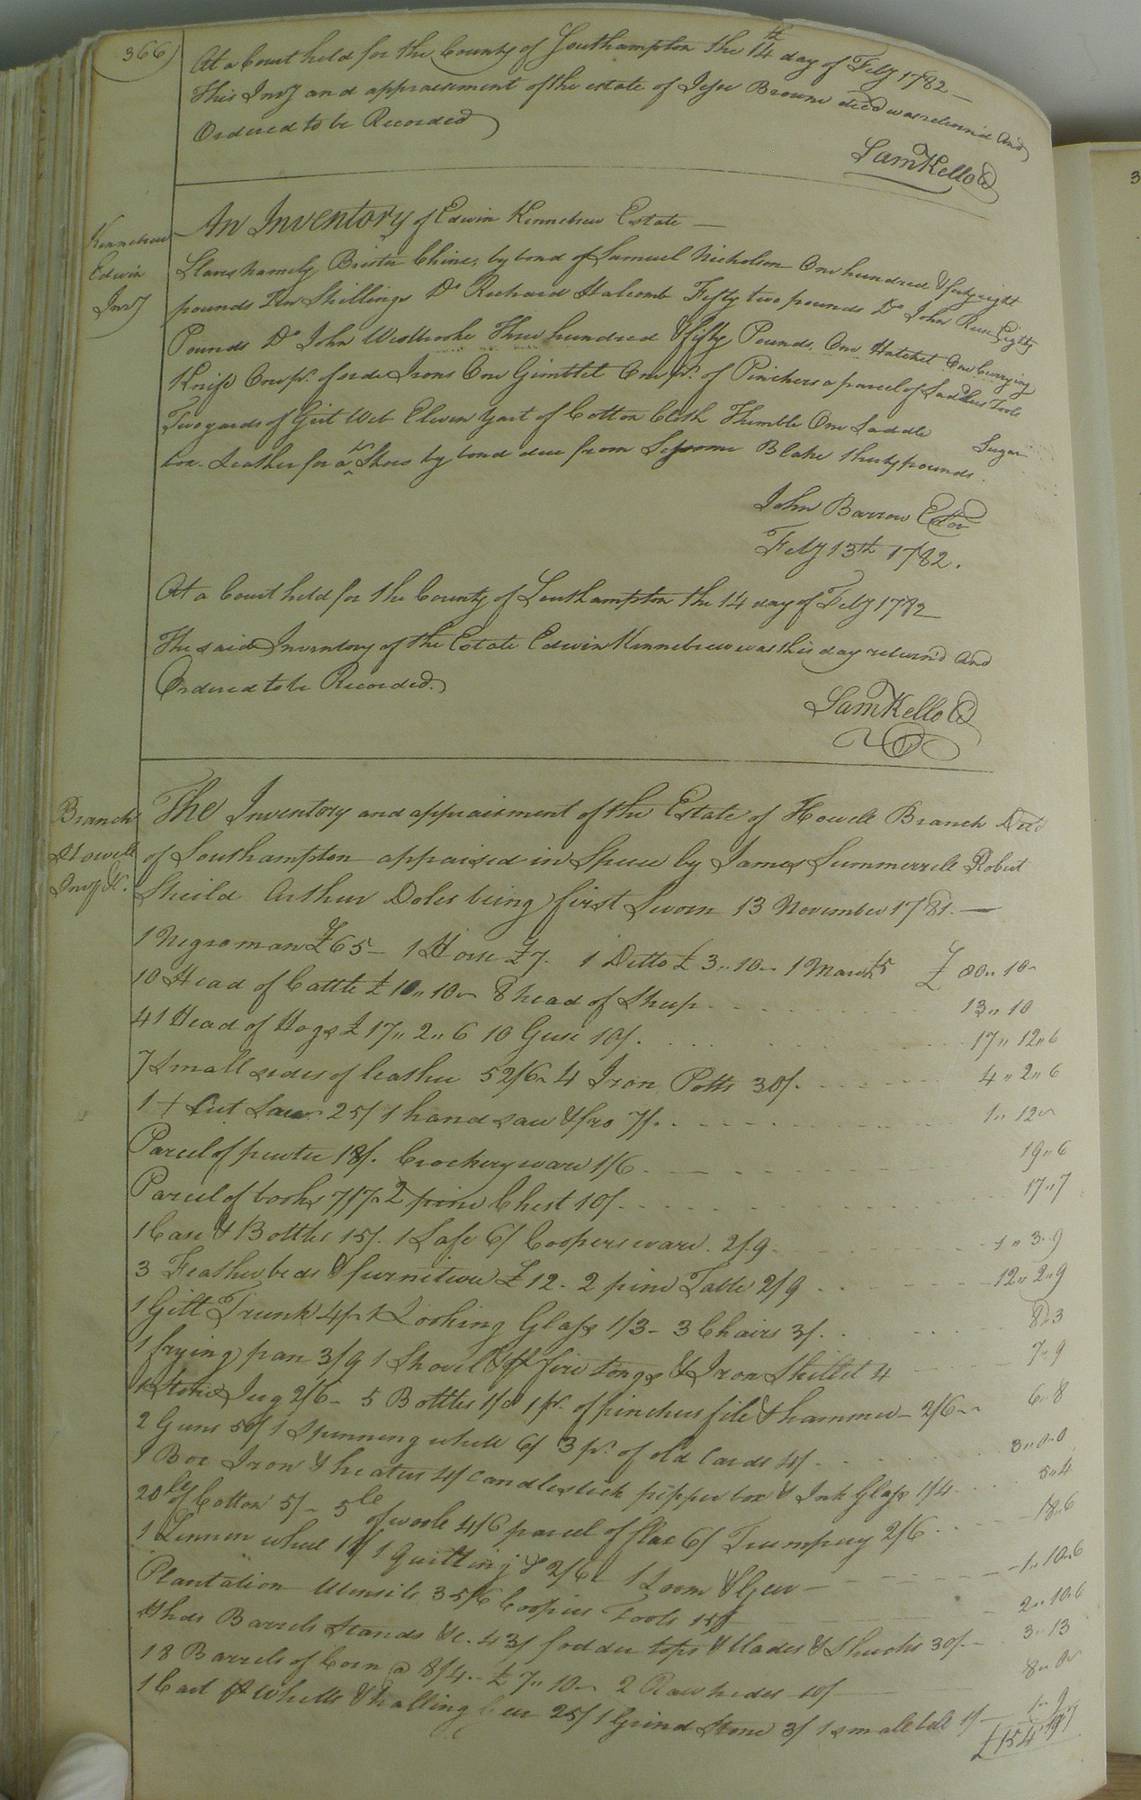 366
At a Court held for the County of Southampton the 14th day of Feby 1782 —
This Invy and appraisement of the estate of Jesse Browne decd was return'd and
Ordered to be Recorded
Sam Kello C
Kennebrew
Edwin
Invy
An Inventory of Edwin Kennebrew Estate —
Slaves namely Brister Chine, by bond of Samuel Nicholson One hundred & forty eight
pounds Ten Shillings Do Richard Halcomb Fifty two pounds Do John Eighty
Pounds Do John Westbrooke Three hundred & fifty Pounds, One Hatchet One Currying
Knife One pr. of Irons One Gimblet One pr. of Pinchers a parcel of Sadlers Tools
Two yards of Girt Web Eleven yart of Cotton Cloth Thimble One Saddle Sugar
box. Leather for a pr Shoes by bond due from Blake thirty pounds.
John Barrow Exor
Feby 13th 1782.
At a Court held for the County of Southampton the 14 day of Feby 1782
The said Inventory of the Estate Edwin Kennebrew was this day return'd and
Ordered to be Recorded.
Sam Kello C
Branch
Howell
Invy &c.
The Inventory and appraisment of the Estate of Howell Branch Decd
of Southampton appraised in Specie by James Summerrell Robert
Sheild Arthur Doles being first Sworn 13 November 1781. —
1 Negro man £65 — 1 Horse £7. 1 Ditto £3..10.. 1 Mare £5 £ 80..10..
10 Head of Cattle £10..10.. 8 head of Sheep 13..10
41 Head of Hogs £17..2..6 10 Geese 10/. 17..12..6
7 Small sides of leather 52/6. 4 Iron Potts 30/. 4..2..6
1 + Cut Saw 25/ 1 hand saw & fro 7/. 1..12..
Parcel of pewter 18/. Crockery ware 1/6. 19..6
Parcel of books 7/7. 2 pine Chest 10/. 17..7
1 Case & Bottles 15/. 1 Safe 6/ Coopers ware. 2/9. 1..3..9
3 Feather beds & furniture £12. 2 pine Table 2/9 12..2..9
1 Gilt Trunk 4/. 1 Looking Glass 1/3 — 3 Chairs 3/. 8..3
1 frying pan 3/9 1 Shovel & fire tongs & Iron Skillet 4 7..9
1 Stone Jug 2/6 — 5 Bottles 1/8 1 pr. of pinchers file & hammer — 2/6 6..8
2 Guns 50/ 1 Spinning wheel 6/ 3 pr. of old Cards 4/. 3..0..0
1 Box Iron & heaters 4/ Candlestick pepper box & Ink Glass 1/4 5..4
20 lb of Cotton 5/ — 5 lb of wool 4/6 parcel of flax 6/ Trumpery 2/6 18..6
1 Linnen wheel 1 Quilting 2/6 1 Loom & Geer — 1..10..6
Plantation Utensils 35/6 Coopers Tools 15/ 2..10..6
Hhds Barrels Stands &c. 43/ fodder tops & blades & Shucks 30/. 3..13
18 Barrels of Corn @ 8/4 — £7..10.. 2 Raw hides 10/ 8..0..
1 Cart & Wheels & halling 25/ 1 Grind Stone 3/ 1 small bell 1/ 1..9..
£154..19..7